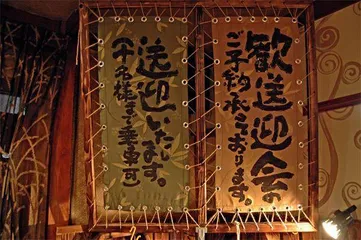 歓送迎会の
ご予約承っております。
送迎いたします。
(十名様まで乗車可)